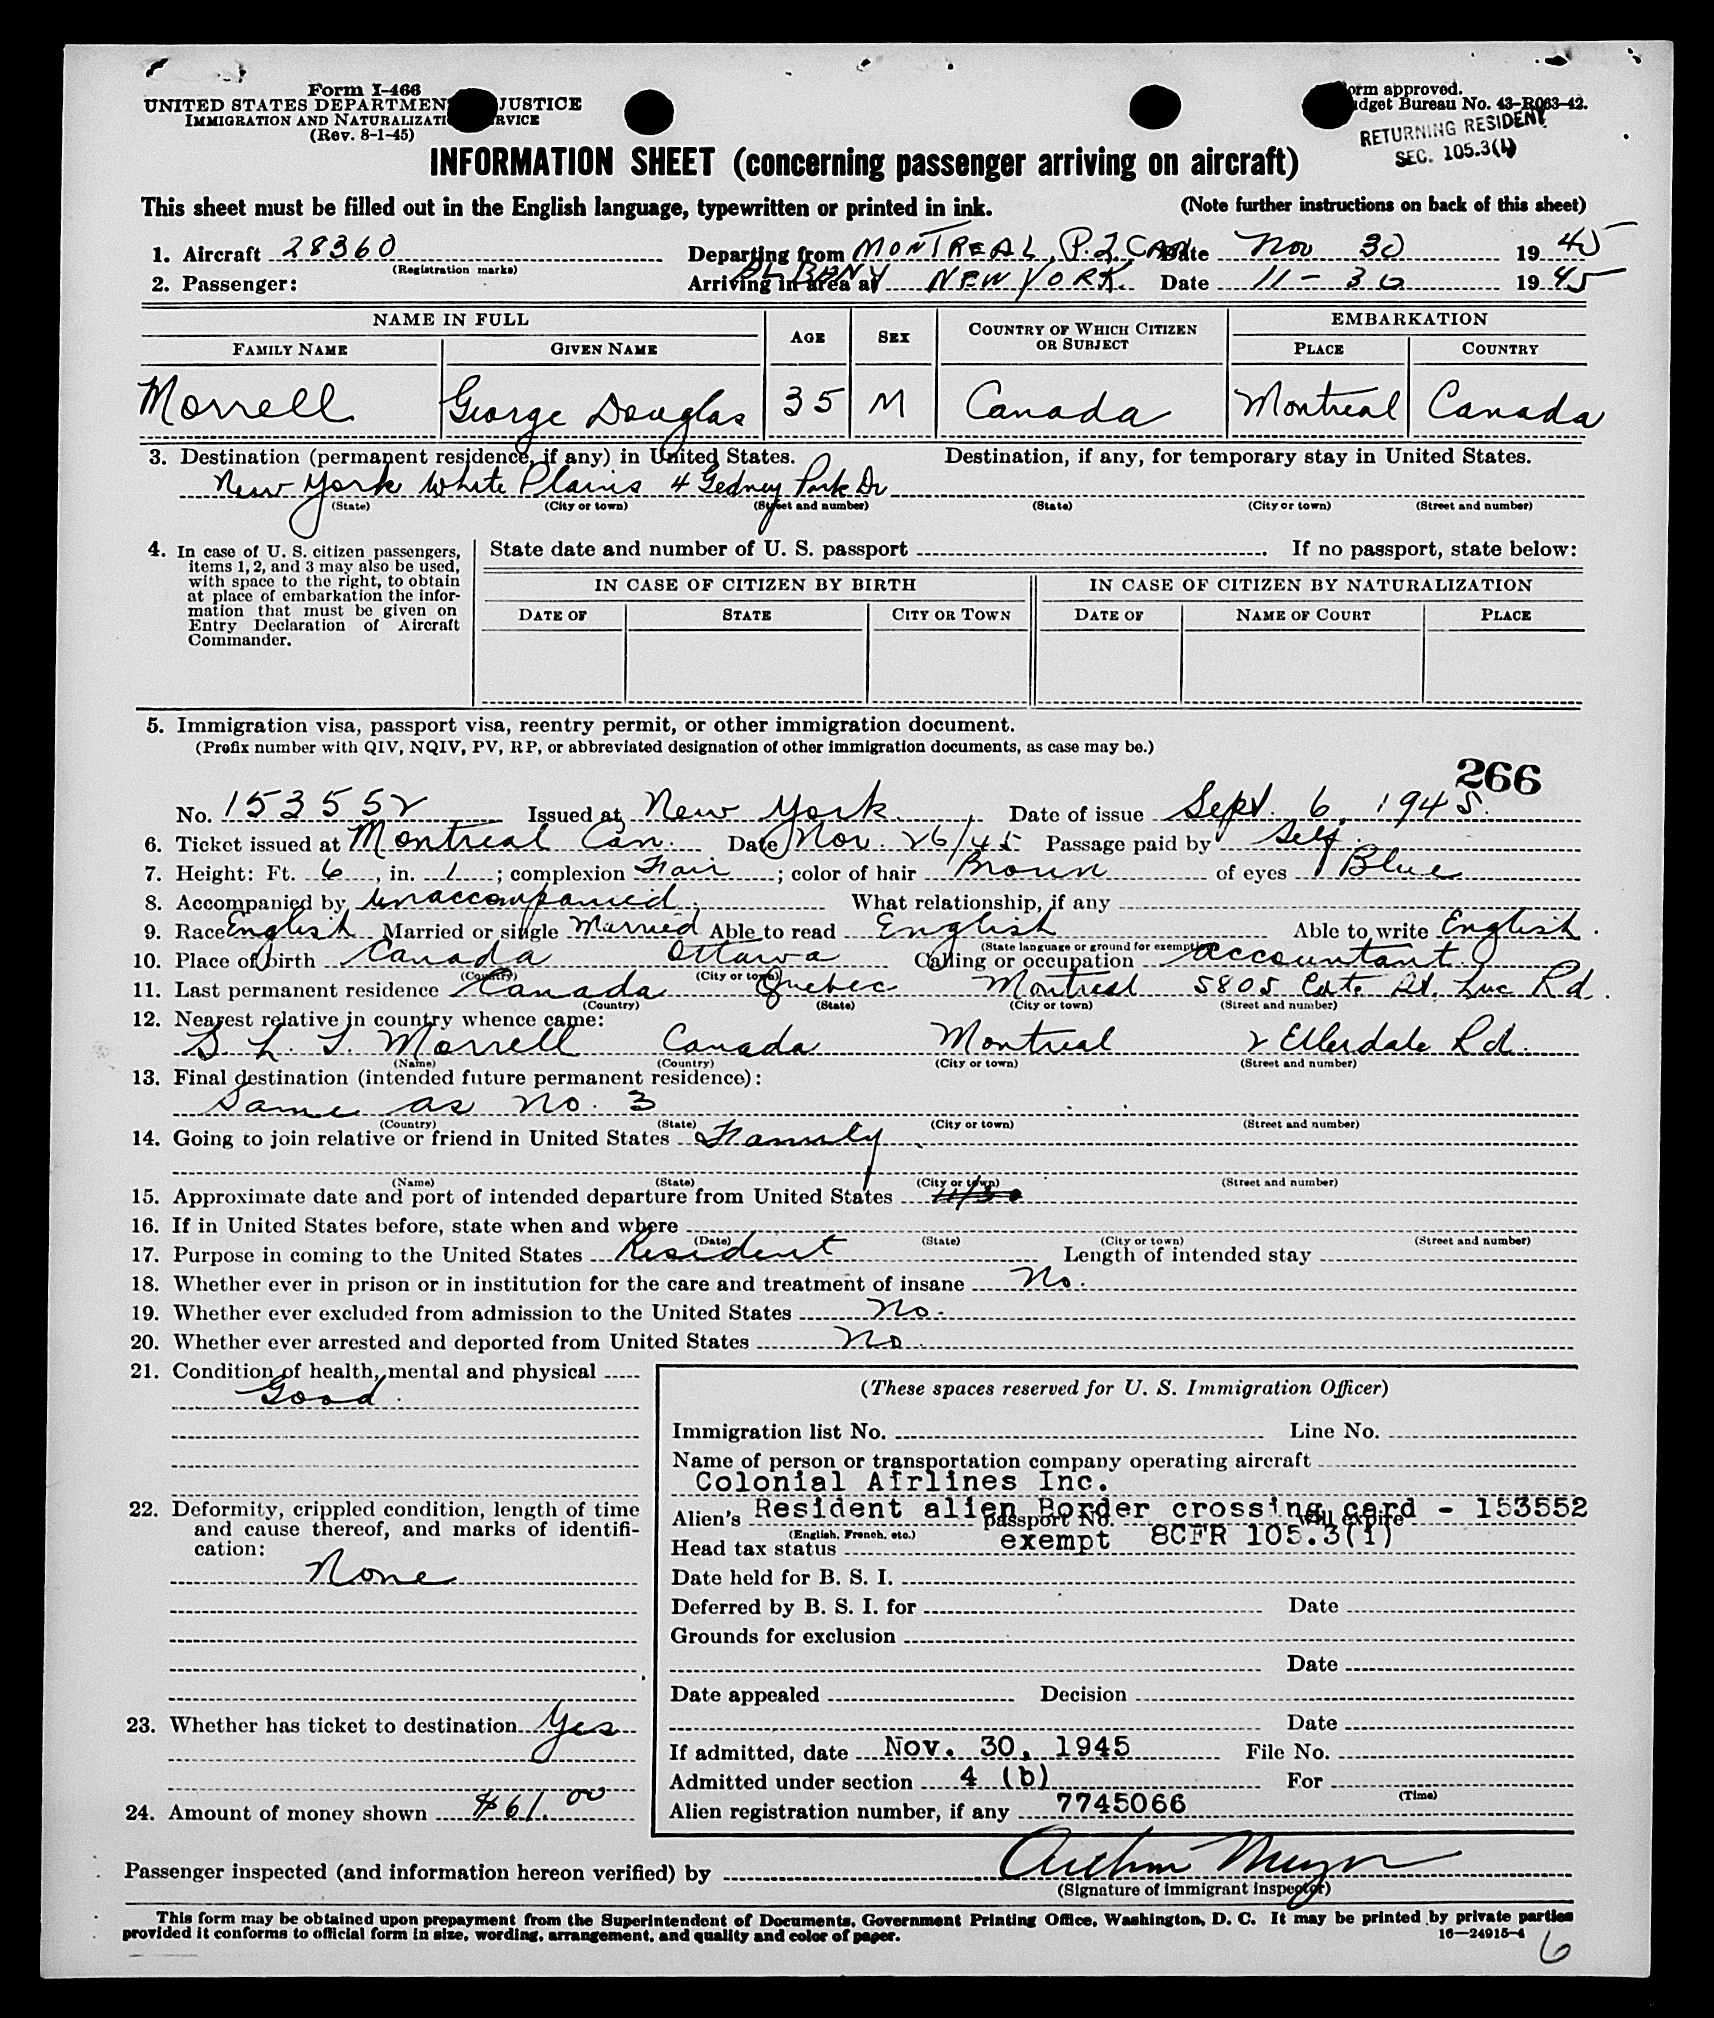 Form I-466
UNITED STATES DEPARTMEN JUSTICE
IMMIGRATION AND NATURALIZATI RVICE
(Rev. 8-1-45)
orm approved.
dget Bureau No. 43-R063-42.
RETURNING RESIDENT
SEC. 105.3(1)
INFORMATION SHEET (concerning passenger arriving on aircraft)
This sheet must be filled out in the English language, typewritten or printed in ink. (Note further instructions on back of this sheet)
1. Aircraft 28360 Departing from MONTREAL, P.Q. CAN. Date Nov 30 1945
(Registration marks)
2. Passenger: Arriving in area at ALBANY NEW YORK. Date 11-30 1945
NAME IN FULL AGE SEX COUNTRY OF WHICH CITIZEN OR SUBJECT EMBARKATION
FAMILY NAME GIVEN NAME PLACE COUNTRY
Morrell George Douglas 35 M Canada Montreal Canada
3. Destination (permanent residence, if any) in United States. Destination, if any, for temporary stay in United States.
New York White Plains 4 Gedney Park Dr
(State) (City or town) (Street and number) (State) (City or town) (Street and number)
4. In case of U. S. citizen passengers, items 1, 2, and 3 may also be used, with space to the right, to obtain at place of embarkation the information that must be given on Entry Declaration of Aircraft Commander.
State date and number of U. S. passport . If no passport, state below:
IN CASE OF CITIZEN BY BIRTH IN CASE OF CITIZEN BY NATURALIZATION
DATE OF STATE CITY OR TOWN DATE OF NAME OF COURT PLACE
5. Immigration visa, passport visa, reentry permit, or other immigration document.
(Prefix number with QIV, NQIV, PV, RP, or abbreviated designation of other immigration documents, as case may be.)
266
No. 153552 Issued at New York Date of issue Sept. 6, 1945.
6. Ticket issued at Montreal Can. Date Nov. 26/45 Passage paid by Self.
7. Height: Ft. 6, in. 1; complexion Fair; color of hair Brown of eyes Blue
8. Accompanied by unaccompanied. What relationship, if any
9. Race English Married or single Married Able to read English Able to write English.
(State language or ground for exemption)
10. Place of birth Canada Ottawa Calling or occupation accountant.
(Country) (City or town)
11. Last permanent residence Canada Quebec Montreal 5805 Cote St. Luc Rd.
(Country) (State) (City or town) (Street and number)
12. Nearest relative in country whence came:
Morrell Canada Montreal 2 Ellerdale Rd.
(Name) (Country) (City or town) (Street and number)
13. Final destination (intended future permanent residence):
Same as no. 3
(Country) (State) (City or town) (Street and number)
14. Going to join relative or friend in United States Family
(Name) (State) (City or town) (Street and number)
15. Approximate date and port of intended departure from United States 11/30
16. If in United States before, state when and where
(Date) (State) (City or town) (Street and number)
17. Purpose in coming to the United States Resident Length of intended stay
18. Whether ever in prison or in institution for the care and treatment of insane No.
19. Whether ever excluded from admission to the United States No.
20. Whether ever arrested and deported from United States No.
21. Condition of health, mental and physical
Good.
22. Deformity, crippled condition, length of time and cause thereof, and marks of identification:
None
23. Whether has ticket to destination Yes
24. Amount of money shown $61.00
(These spaces reserved for U. S. Immigration Officer)
Immigration list No. Line No.
Name of person or transportation company operating aircraft
Colonial Airlines Inc.
Alien's Resident alien Border crossing card - 153552
passport No. will expire
(English, French, etc.)
Head tax status exempt 8CFR 105.3(1)
Date held for B. S. I.
Deferred by B. S. I. for Date
Grounds for exclusion
Date
Date appealed Decision
Date
If admitted, date Nov. 30, 1945 File No.
Admitted under section 4 (b) For
(Time)
Alien registration number, if any 7745066
Passenger inspected (and information hereon verified) by Arthur
(Signature of immigrant inspector)
This form may be obtained upon prepayment from the Superintendent of Documents, Government Printing Office, Washington, D. C. It may be printed by private parties
provided it conforms to official form in size, wording, arrangement, and quality and color of paper. 16—24915-4
6